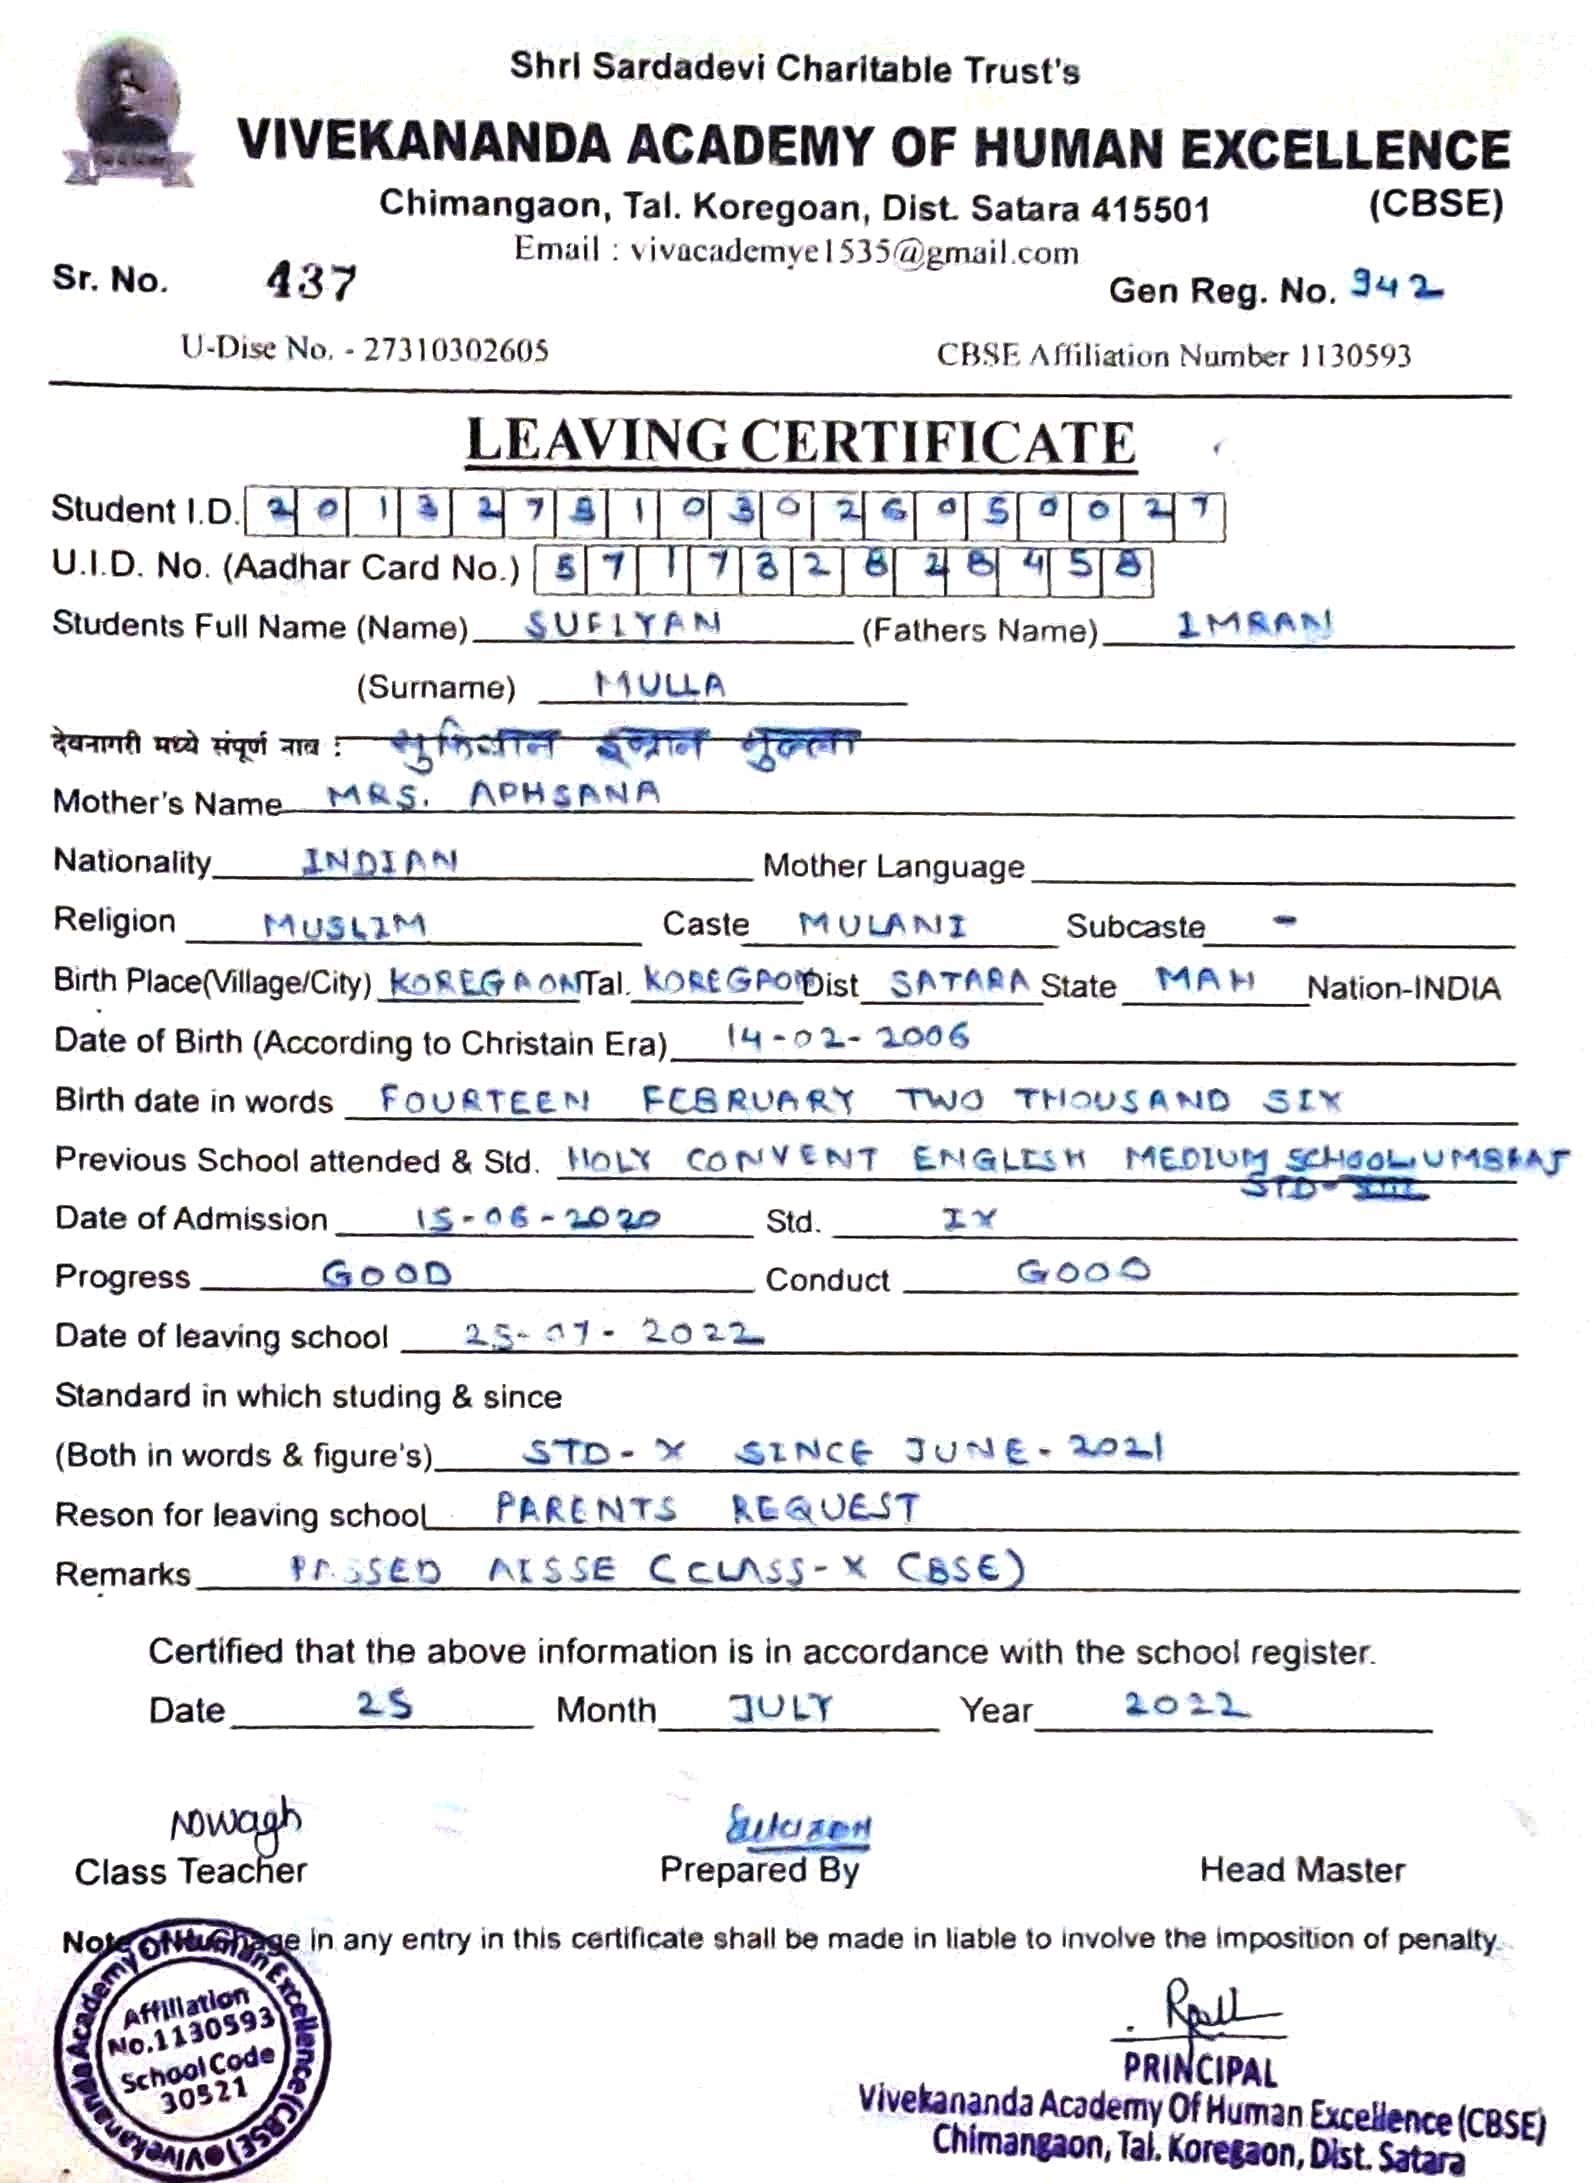 Shri Sardadevi Charitable Trust's
VIVEKANANDA ACADEMY OF HUMAN EXCELLENCE
Chimangaon, Tal. Koregoan, Dist. Satara 415501 (CBSE)
Email : vivacademye1535@gmail.com
Sr. No. 437 Gen Reg. No. 942
U-Dise No. - 27310302605 CBSE Affiliation Number 1130593
LEAVING CERTIFICATE
Student I.D. 2013278103026050027
U.I.D. No. (Aadhar Card No.)
Students Full Name (Name) SUFIYAN (Fathers Name) IMRAN
(Surname) MULLA
देवनागरी मध्ये संपूर्ण नाव : सुफियान इम्रान मुल्ला
Mother's Name MRS. APHSANA
Nationality INDIAN Mother Language
Religion MUSLIM Caste MULANI Subcaste -
Birth Place(Village/City) KOREGAON Tal. KOREGAON Dist SATARA State MAH Nation-INDIA
Date of Birth (According to Christain Era) 14-02-2006
Birth date in words FOURTEEN FEBRUARY TWO THOUSAND SIX
Previous School attended & Std. HOLY CONVENT ENGLISH MEDIUM SCHOOL, UMBRAJ
STD- VIII
Date of Admission 15-06-2020 Std. IX
Progress GOOD Conduct GOOD
Date of leaving school 25-07-2022
Standard in which studing & since
(Both in words & figure's) STD-X SINCE JUNE-2021
Reson for leaving school PARENTS REQUEST
Remarks PASSED AISSE (CLASS-X CBSE)
Certified that the above information is in accordance with the school register.
Date 25 Month JULY Year 2022
Class Teacher Prepared By Head Master
Note in any entry in this certificate shall be made in liable to involve the imposition of penalty.
Vivekananda Academy Of Human Excellence (CBSE)
Affiliation
No.1130593
School Code
30521
PRINCIPAL
Vivekananda Academy Of Human Excellence (CBSE)
Chimangaon, Tal. Koregaon, Dist. Satara